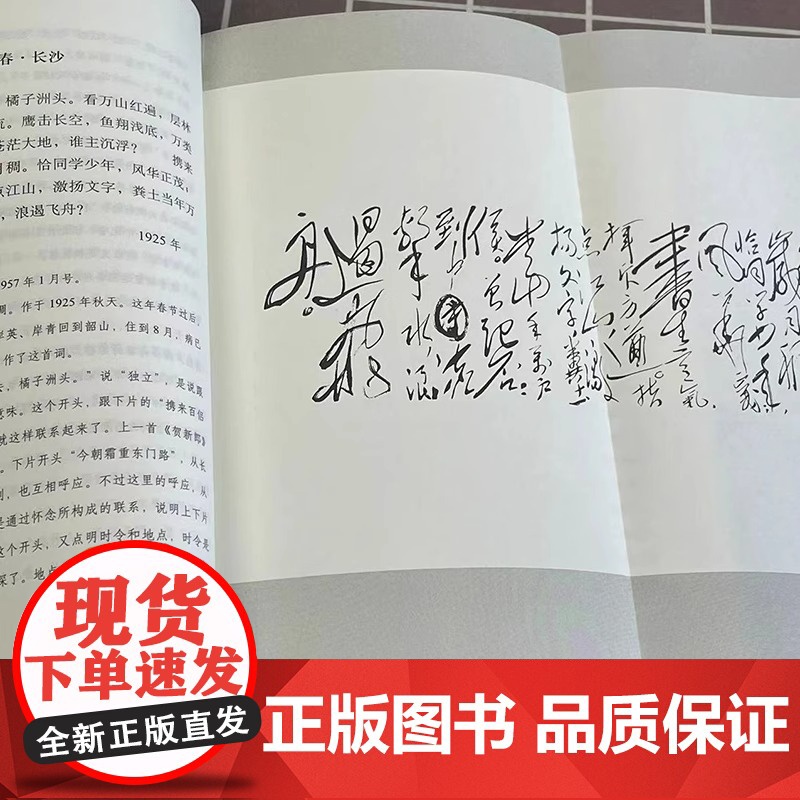 春·长沙
橘子洲头。看万山红遍，层林
流。鹰击长空，鱼翔浅底，万类
苍茫大地，谁主沉浮？ 携来
稠。恰同学少年，风华正茂；
江山，激扬文字，粪土当年万
，浪遏飞舟？
1925 年
1957 年 1 月号。
调。作于 1925 年秋天。这年春节过后，
岸英、岸青回到韶山，住到 8 月，病已
作了这首词。
去，橘子洲头。”说“独立”，是说跟
意味。这个开头，跟下片的“携来百侣
就这样联系起来了。上一首《贺新郎》
。下片开头“今朝霜重东门路”，从长
别，也互相呼应。不过这里的呼应，从
是通过怀念所构成的联系，说明上下片
这个开头，又点明时令和地点，时令是
深了。地点
恰同学少年
风华
书生意气
挥斥方遒。指
点江山激
扬文字粪土
当年万户
侯。曾记否：
到中流
击水浪
遏飞
舟。
现货
全新正版直发
正版图书 品质保证